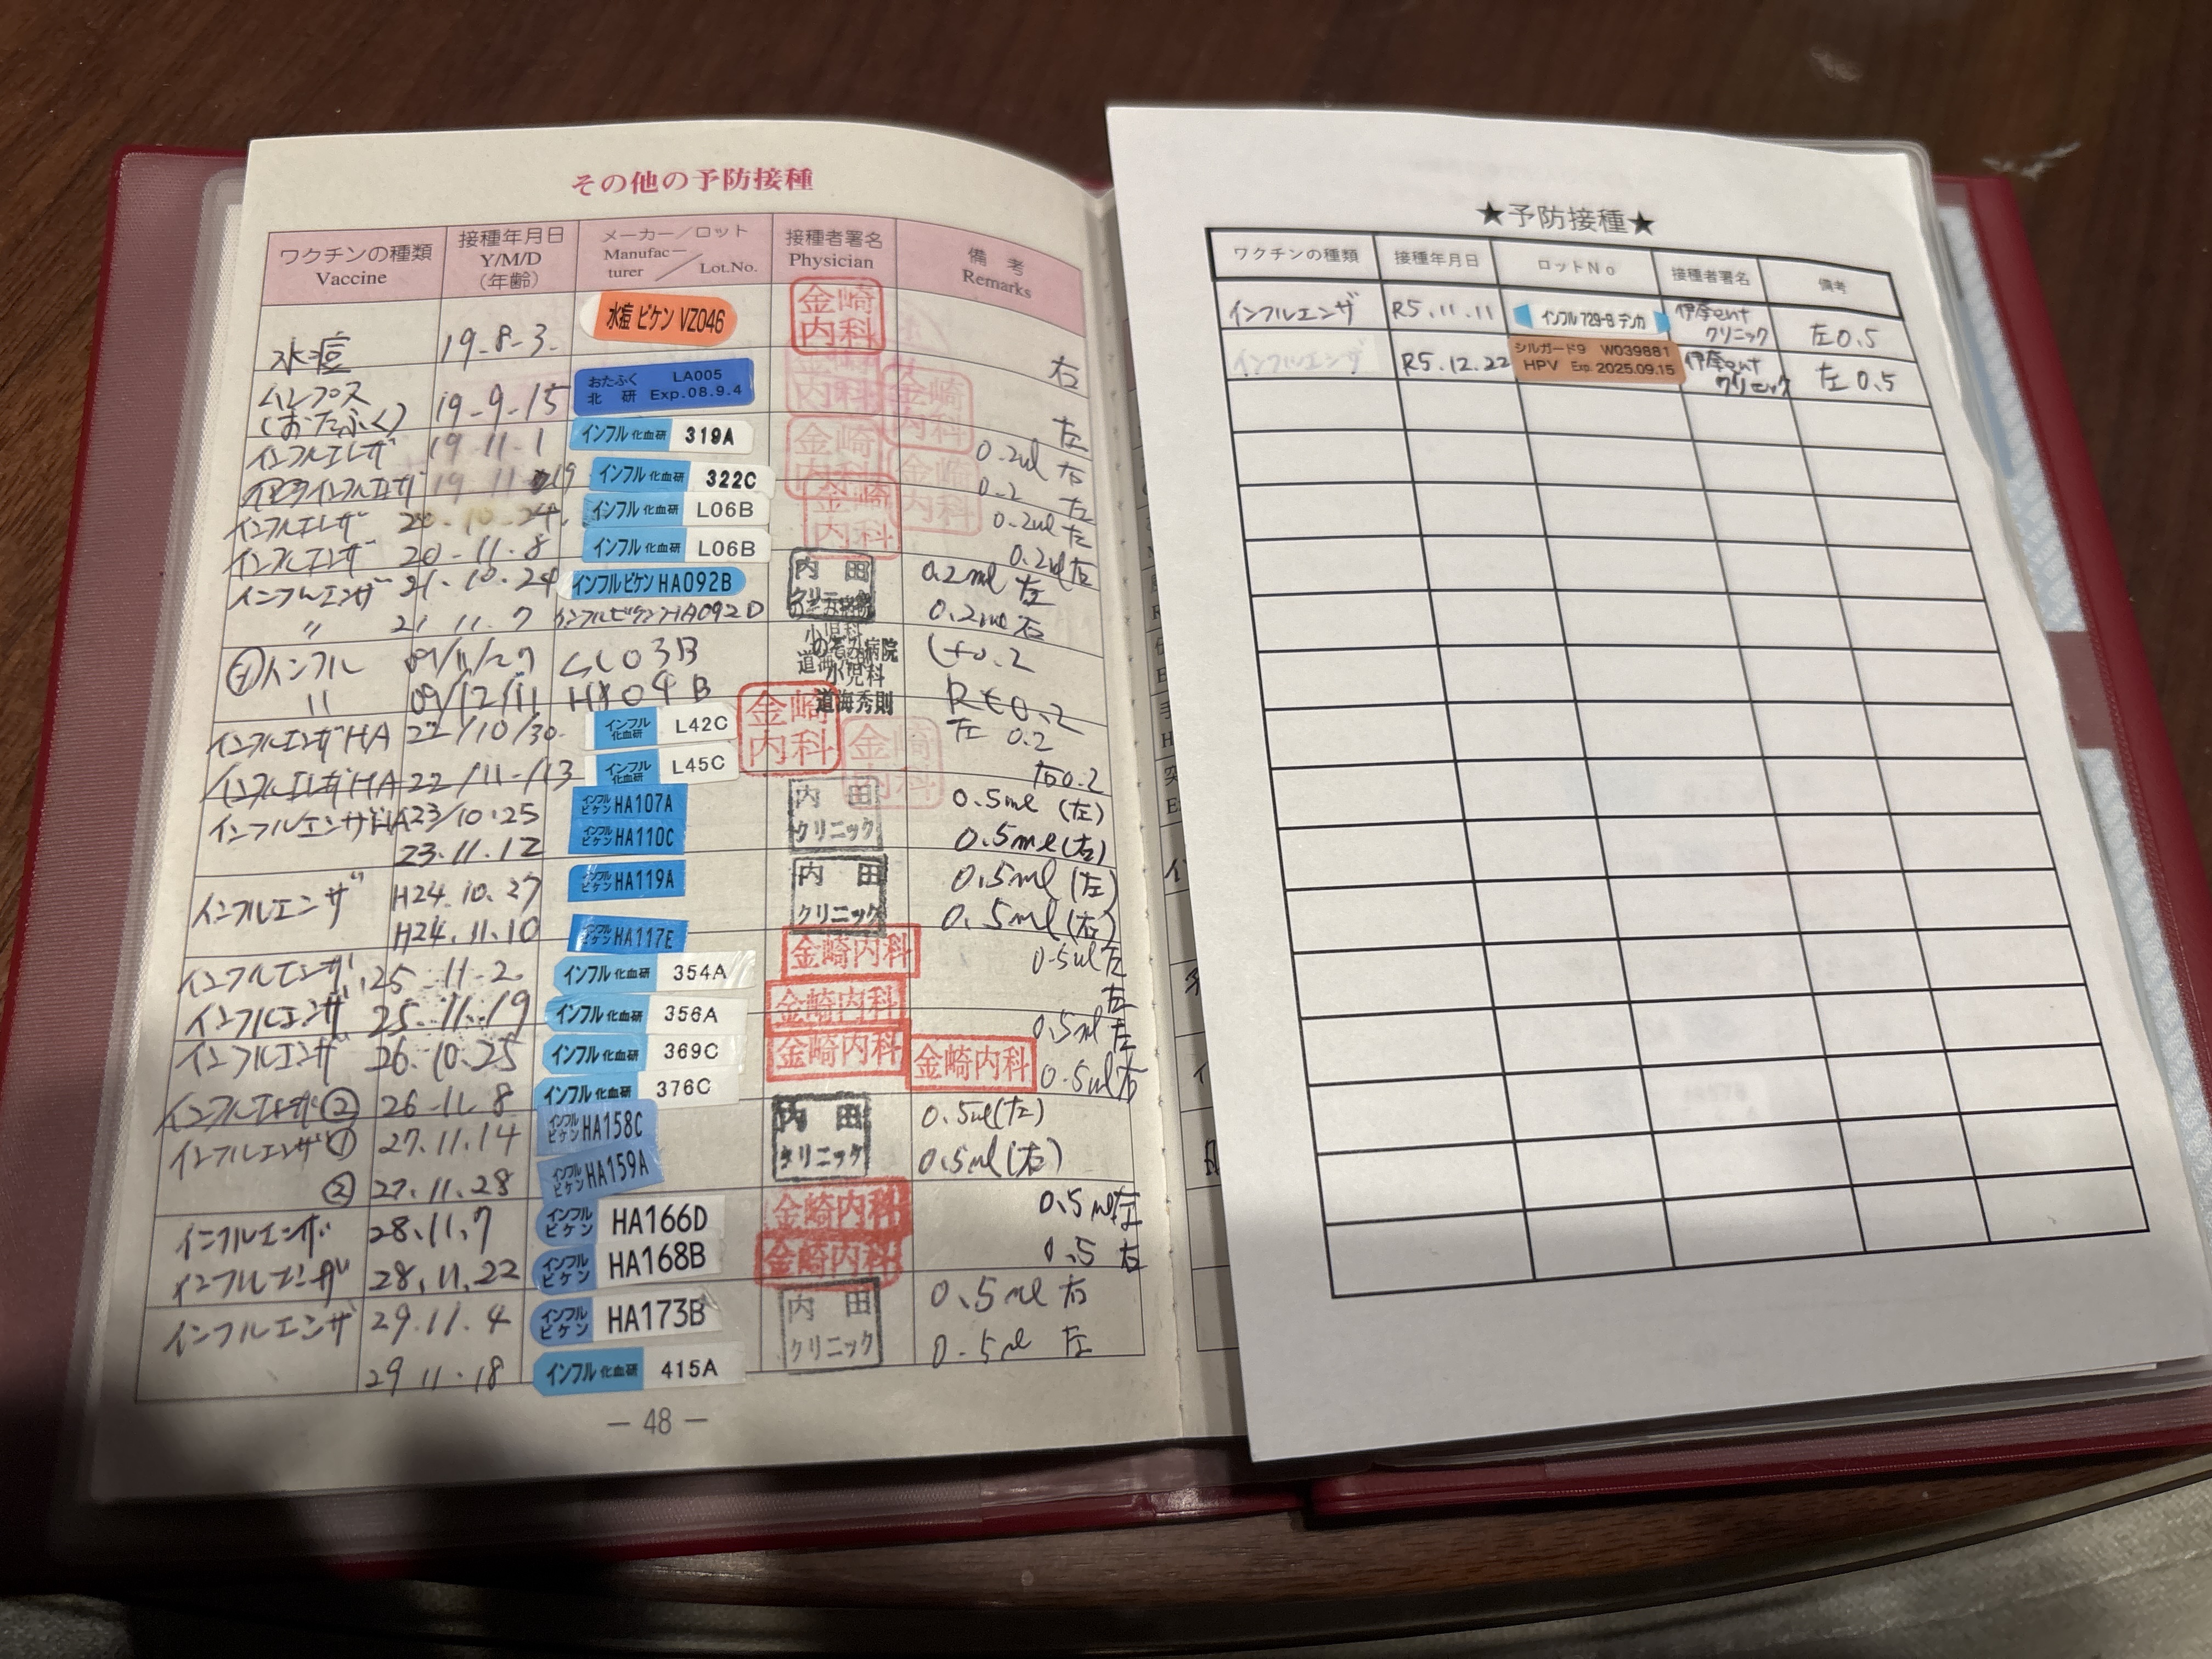 その他の予防接種
ワクチンの種類 Vaccine 接種年月日 Y/M/D (年齢) メーカー/ロット Manufac-turer / Lot.No. 接種者署名 Physician 備考 Remarks
水痘 19.8-3. 水痘 ビケン VZ046 金崎内科 右
ムンプス (おたふく) 19-9-15 おたふく 北研 LA005 Exp.08.9.4 金崎内科 左
インフルエンザ 19-11-1 インフル 化血研 319A 金崎内科 0.2ml 右
インフルエンザ 19 11 19 インフル 化血研 322C 金崎内科 0.2 左
インフルエンザ 20-10-24. インフル 化血研 L06B 金崎内科 0.2ml 左
インフルエンザ 20-11-8 インフル 化血研 L06B 金崎内科 0.2ml 右
インフルエンザ 21.10.24 インフル ビケン HA092B 内田クリニック 0.2ml 左
〃 21.11.7 インフルビケンHA092D 0.2ml 右
インフル 09/11/27 03B のぞみ病院 小児科 道海秀則 Lt0.2
〃 09/12/11 04B のぞみ病院 小児科 道海秀則 Rt0.2
インフルエンザHA 22/10/30 インフル 化血研 L42C 金崎内科 左 0.2
インフルエンザHA 22/11-/13 インフル 化血研 L45C 金崎内科 右0.2
インフルエンザHA 23/10.25 インフル ビケン HA107A 内田クリニック 0.5ml (左)
23.11.12 インフル ビケン HA110C 0.5ml (右)
インフルエンザ H24.10.27 インフル ビケン HA119A 内田クリニック 0.5ml (左)
H24.11.10 インフル ビケン HA117E 0.5ml (右)
インフルエンザ 25-11-2. インフル 化血研 354A 金崎内科 0.5ml左
インフルエンザ 25.11.19 インフル 化血研 356A 金崎内科 左
インフルエンザ 26.10.25 インフル 化血研 369C 金崎内科 0.5ml 左
インフルエンザ② 26-11.8 インフル 化血研 376C 金崎内科 0.5ml右
インフルエンザ① 27.11.14 インフル ビケン HA158C 内田クリニック 0.5ml(左)
② 27.11.28 インフル ビケン HA159A 0.5ml(右)
インフルエンザ 28.11.7 インフル ビケン HA166D 金崎内科 0.5ml左
インフルエンザ 28.11.22 インフル ビケン HA168B 金崎内科 0.5 右
インフルエンザ 29.11.4 インフル ビケン HA173B 内田クリニック 0.5ml 右
29 11.18 インフル 化血研 415A 0.5ml 左
— 48 —
★予防接種★
ワクチンの種類 接種年月日 ロットNo 接種者署名 備考
インフルエンザ R5.11.11 インフル 729-B デンカ 伊奈ent クリニック 左0.5
インフルエンザ R5.12.22 シルガード9 W039881 HPV Exp. 2025.09.15 伊奈ent クリニック 左 0.5